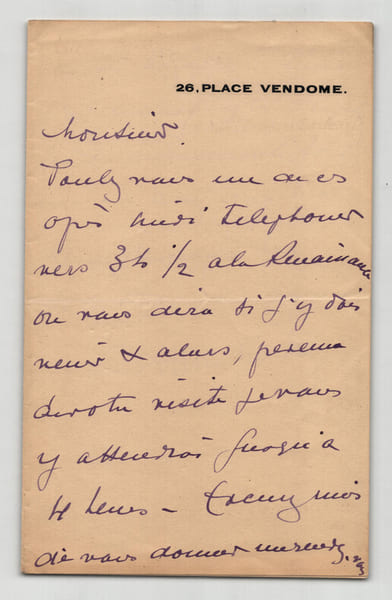 26, PLACE VENDOME.
Monsieur.
voulez vous un de ces
après midi telephoner
vers 3h 1/2 a la Renaissance
on vous dira si j'y dois
venir & alors, prevenu
de votre visite je vous
y attendrai jusqu'a
4 heures -
de vous donner